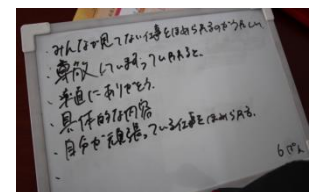 ・みんなが見てない仕事をほめられるのがうれしい
・尊敬していますっていわれると。
・素直にありがとう。
・具体的な内容
・自分が頑張っている仕事をほめられる。
6ぱん